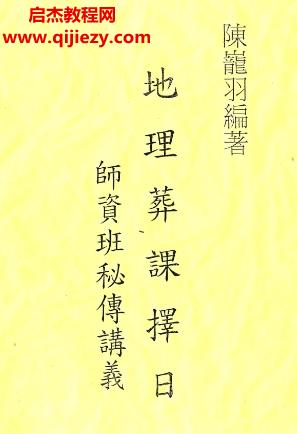 启杰教程网
www.qijiezy.com
陳巃羽編著
地理葬課擇日
師資班秘傳講義